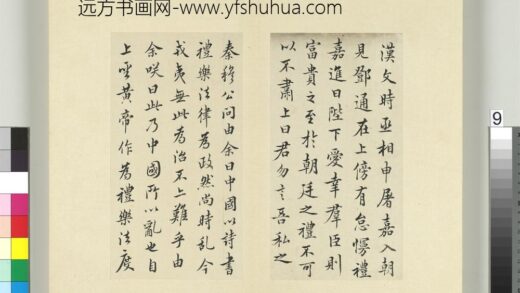 远方书画网-www.yfshuhua.com
漢文時丞相申屠嘉入朝
見鄧通在上傍有怠慢禮
嘉進曰陛下愛幸羣臣則
富貴之至於朝廷之禮不可
以不肅上曰君勿言吾私之
秦穆公問由余曰中國以詩書
禮樂法律為政然尚時亂今
戎夷無此為治不亦難乎由
余咲曰此乃中國所以亂也自
上聖黃帝作為禮樂法度
9